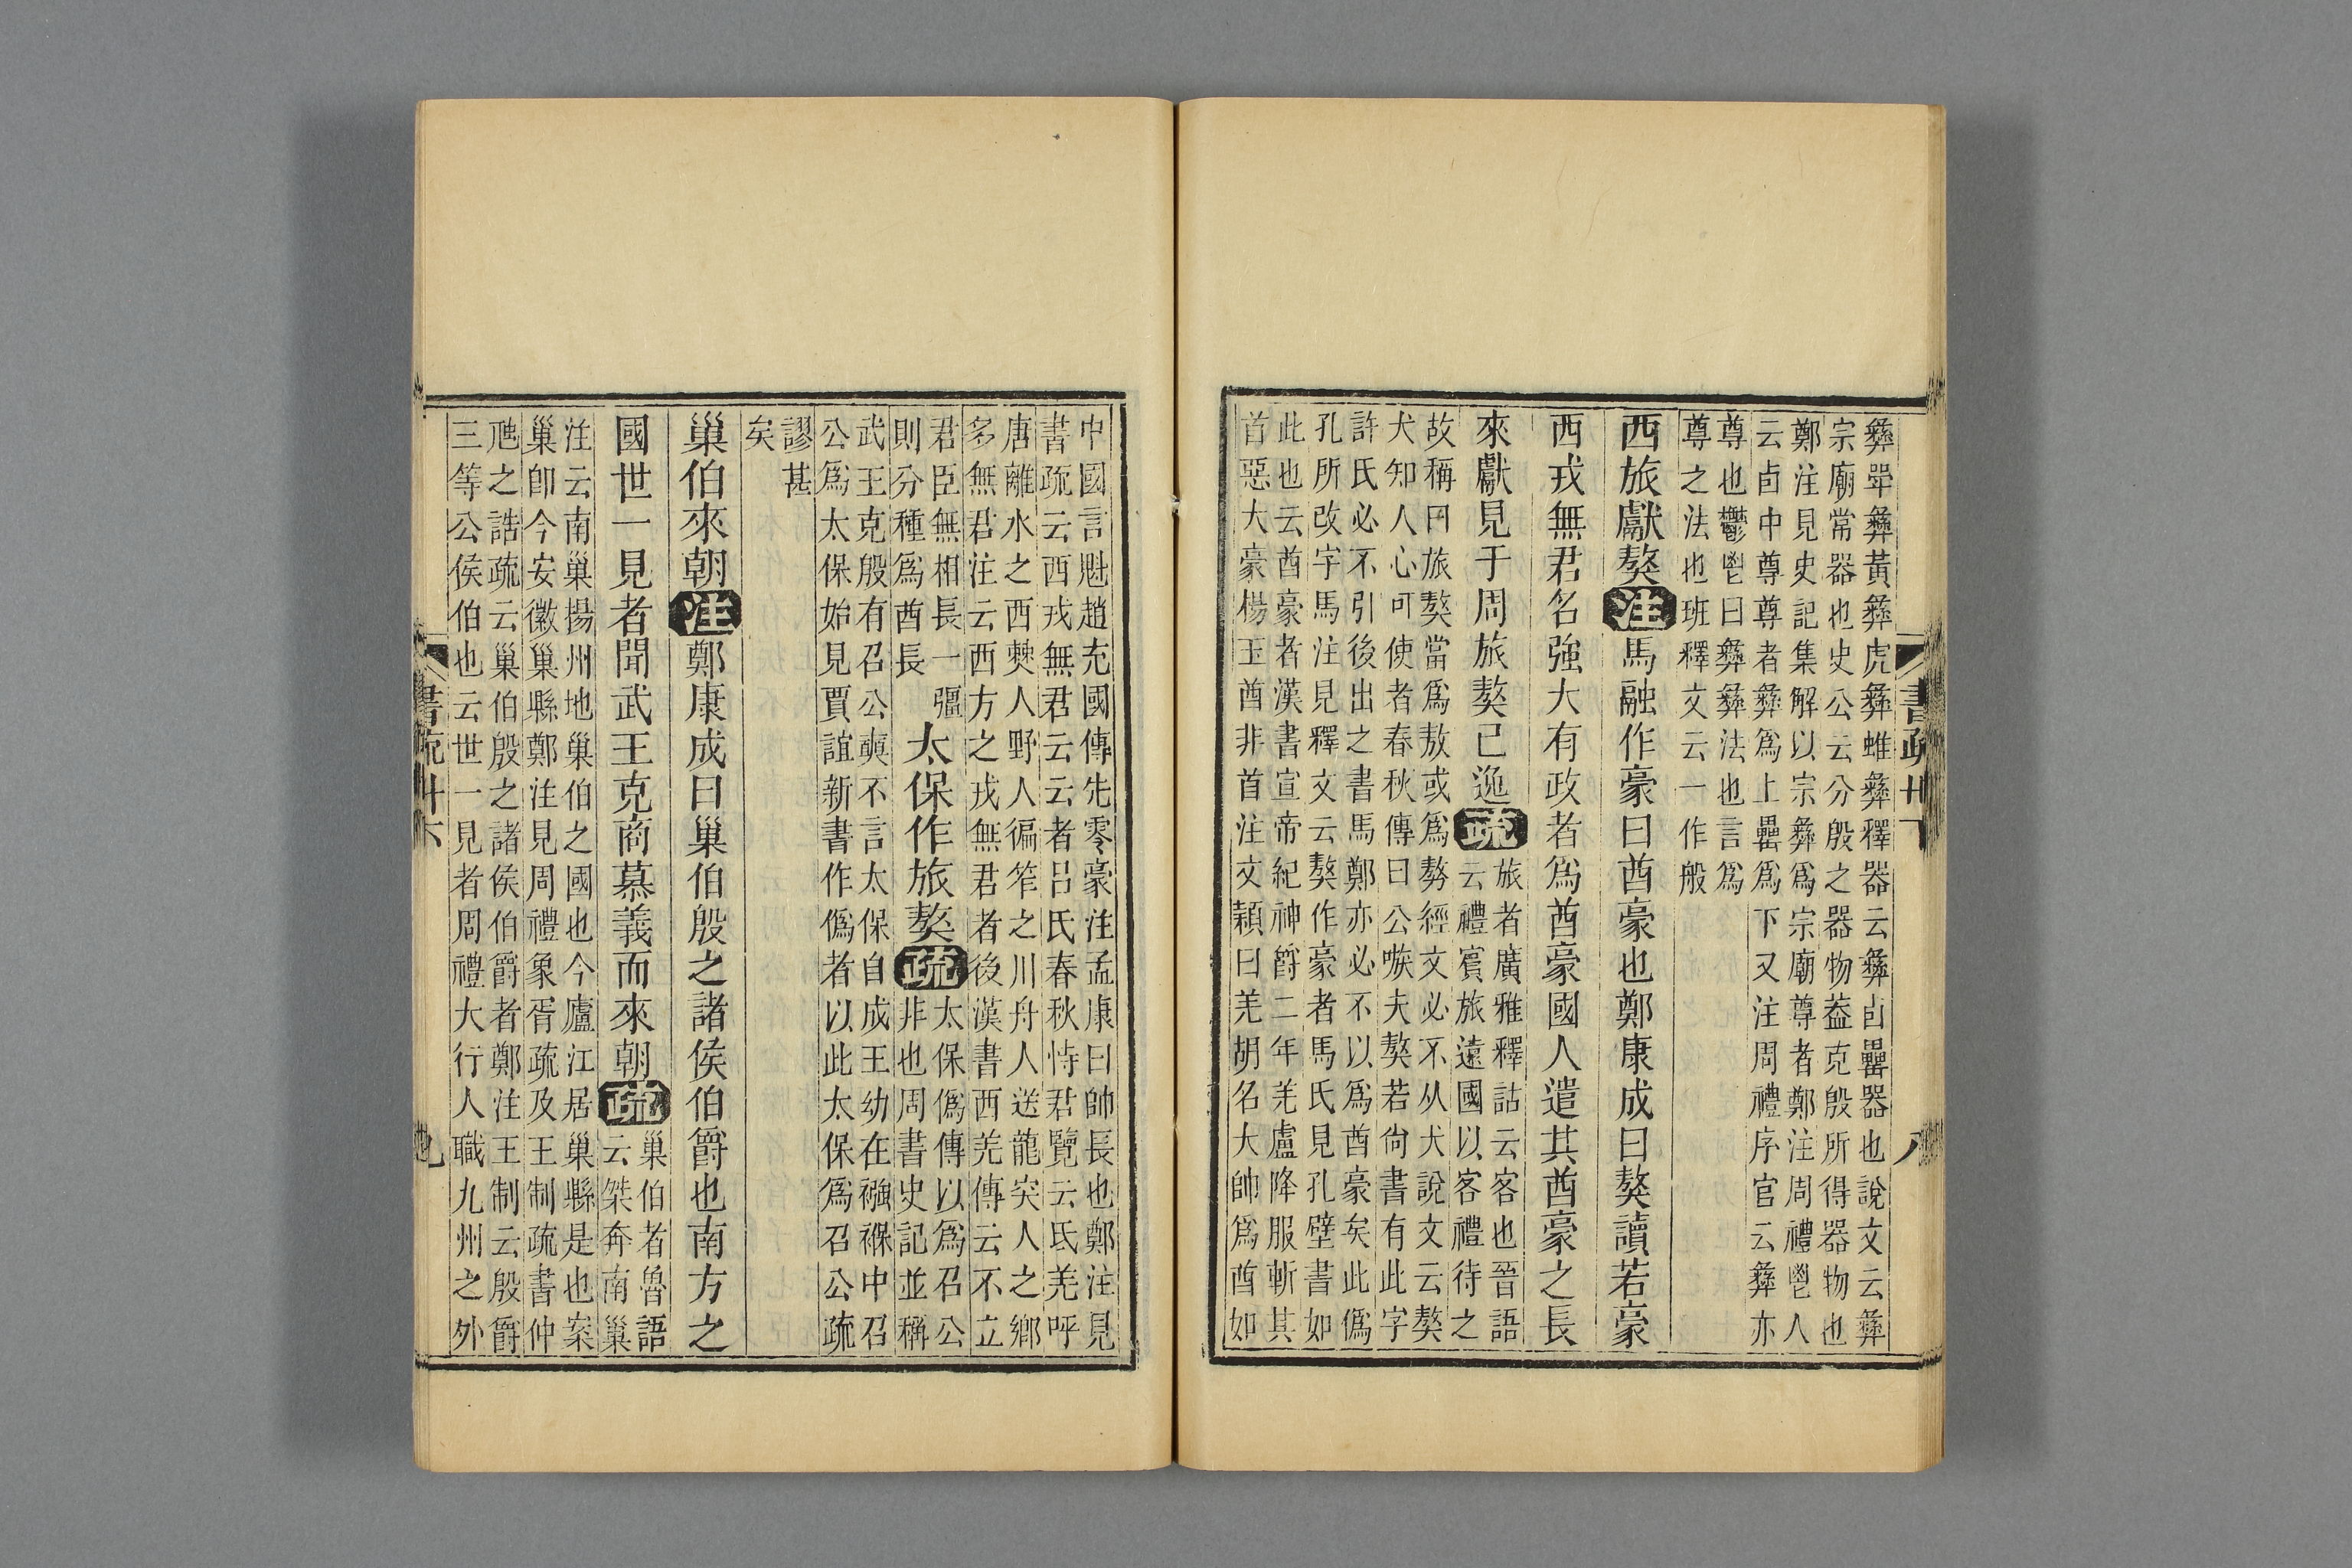 彝斝彝黃彝虎彝蜼彝釋器云彝卣罍器也說文云彝
宗廟常器也史公云分殷之器物葢克殷所得器物也
鄭注見史記集解以宗彝爲宗廟尊者鄭注周禮鬯人
云卣中尊尊者彝爲上罍爲下又注周禮序官云彝亦
尊也鬱鬯曰彝彝法也言爲
尊之法也班釋文云一作般
西旅獻獒注馬融作豪曰酋豪也鄭康成曰獒讀若豪
西戎無君名強大有政者爲酋豪國人遣其酋豪之長
來獻見于周旅獒已逸疏
旅者廣雅釋詁云客也晉語
云禮賓旅遠國以客禮待之
故稱曰旅獒當爲敖或爲勢經文必不从犬說文云獒
犬知人心可使者春秋傳曰公嗾夫獒若尙書有此字
許氏必不引後出之書馬鄭亦必不以爲酋豪矣此僞
孔所改字馬注見釋文云獒作豪者馬氏見孔壁書如
此也云酋豪者漢書宣帝紀神爵二年羌盧降服斬其
首惡大豪楊玉酋非首注文穎曰羌胡名大帥爲酋如
書疏卅下
八
中國言魁趙充國傳先零豪注孟康曰帥長也鄭注見
書疏云西戎無君云云者呂氏春秋恃君覽云氐羌呼
唐離水之西僰人野人徧笮之川舟人送龍突人之鄉
多無君注云西方之戎無君者後漢書西羌傳云不立
君臣無相長一彊
則分種爲酋長
太保作旅獒疏
太保僞傳以爲召公
非也周書史記並稱
武王克殷有召公奭不言太保自成王幼在襁褓中召
公爲太保始見賈誼新書作僞者以此太保爲召公疏
謬甚
矣
巢伯來朝注鄭康成曰巢伯殷之諸侯伯爵也南方之
國世一見者聞武王克商慕義而來朝疏
巢伯者魯語
云桀奔南巢
注云南巢揚州地巢伯之國也今廬江居巢縣是也案
巢卽今安徽巢縣鄭注見周禮象胥疏及王制疏書仲
虺之誥疏云巢伯殷之諸侯伯爵者鄭注王制云殷爵
三等公侯伯也云世一見者周禮大行人職九州之外
書疏卅下
九